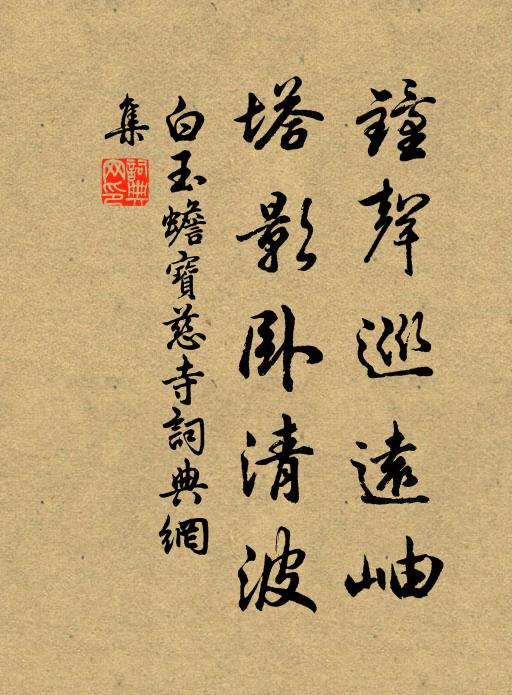 鐘聲巡遠岫
塔影臥清波
白玉蟾寶慈寺詞典網
集
詞典
网印